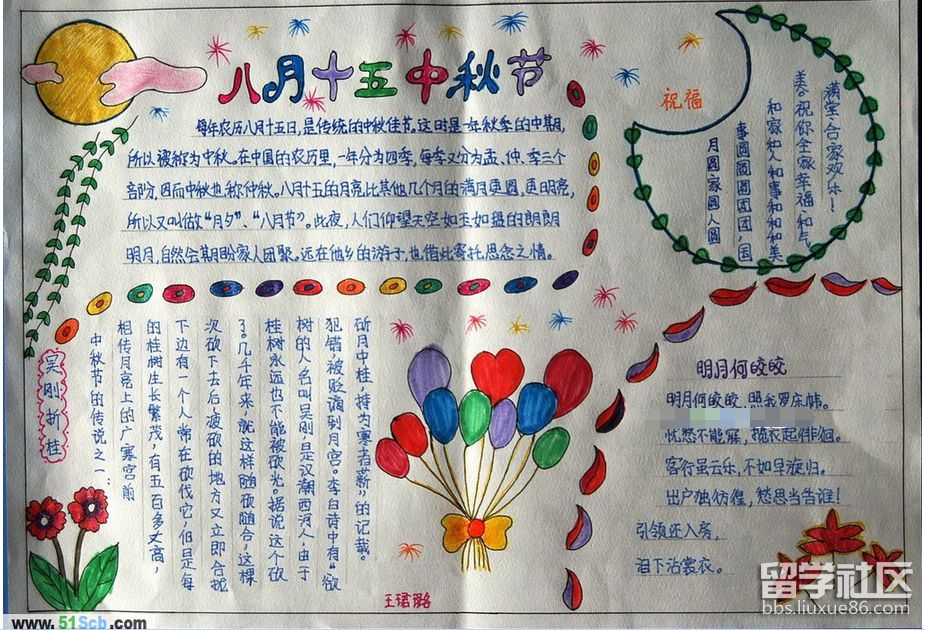 八月十五中秋节
每年农历八月十五日,是传统的中秋佳节。这时是一年秋季的中期,
所以被称为中秋。在中国的农历里,一年分为四季,每季又分为孟、仲、季三个
部分,因而中秋也称仲秋。八月十五的月亮比其他几个月的满月更圆,更明亮,
所以又叫做“月夕”、“八月节”。此夜,人们仰望天空如玉如盘的朗朗
明月,自然会期盼家人团聚。远在他乡的游子,也借此寄托思念之情。
祝福
月圆家圆人圆
事圆圆圆团团,国
和家和人和事和和和美
美。祝你全家幸福.和气
满堂.合家欢乐!
吴刚折桂
中秋节的传说之一:
相传月亮上的广寒宫前
的桂树生长繁茂,有五百多丈高,
下边有一个人常在砍伐它,但是每
次砍下去后,被砍的地方又立即合拢
了。几千年来,就这样随砍随合,这棵
桂树永远也不能被砍光。据说这个砍
树的人名叫吴刚,是汉潮西河人,由于
犯错,被贬谪到月宫。李白诗中有“欲
斫月中桂,持为寒者薪”的记载。
明月何皎皎
明月何皎皎,照我罗床帏。
忧愁不能寐,揽衣起徘徊。
客行虽云乐,不如早旋归。
出户独彷徨,愁思当告谁!
引领还入房,
泪下沾裳衣。
王珺璐
留学社区
bbs.liuxue86.com
www.51Scb.com